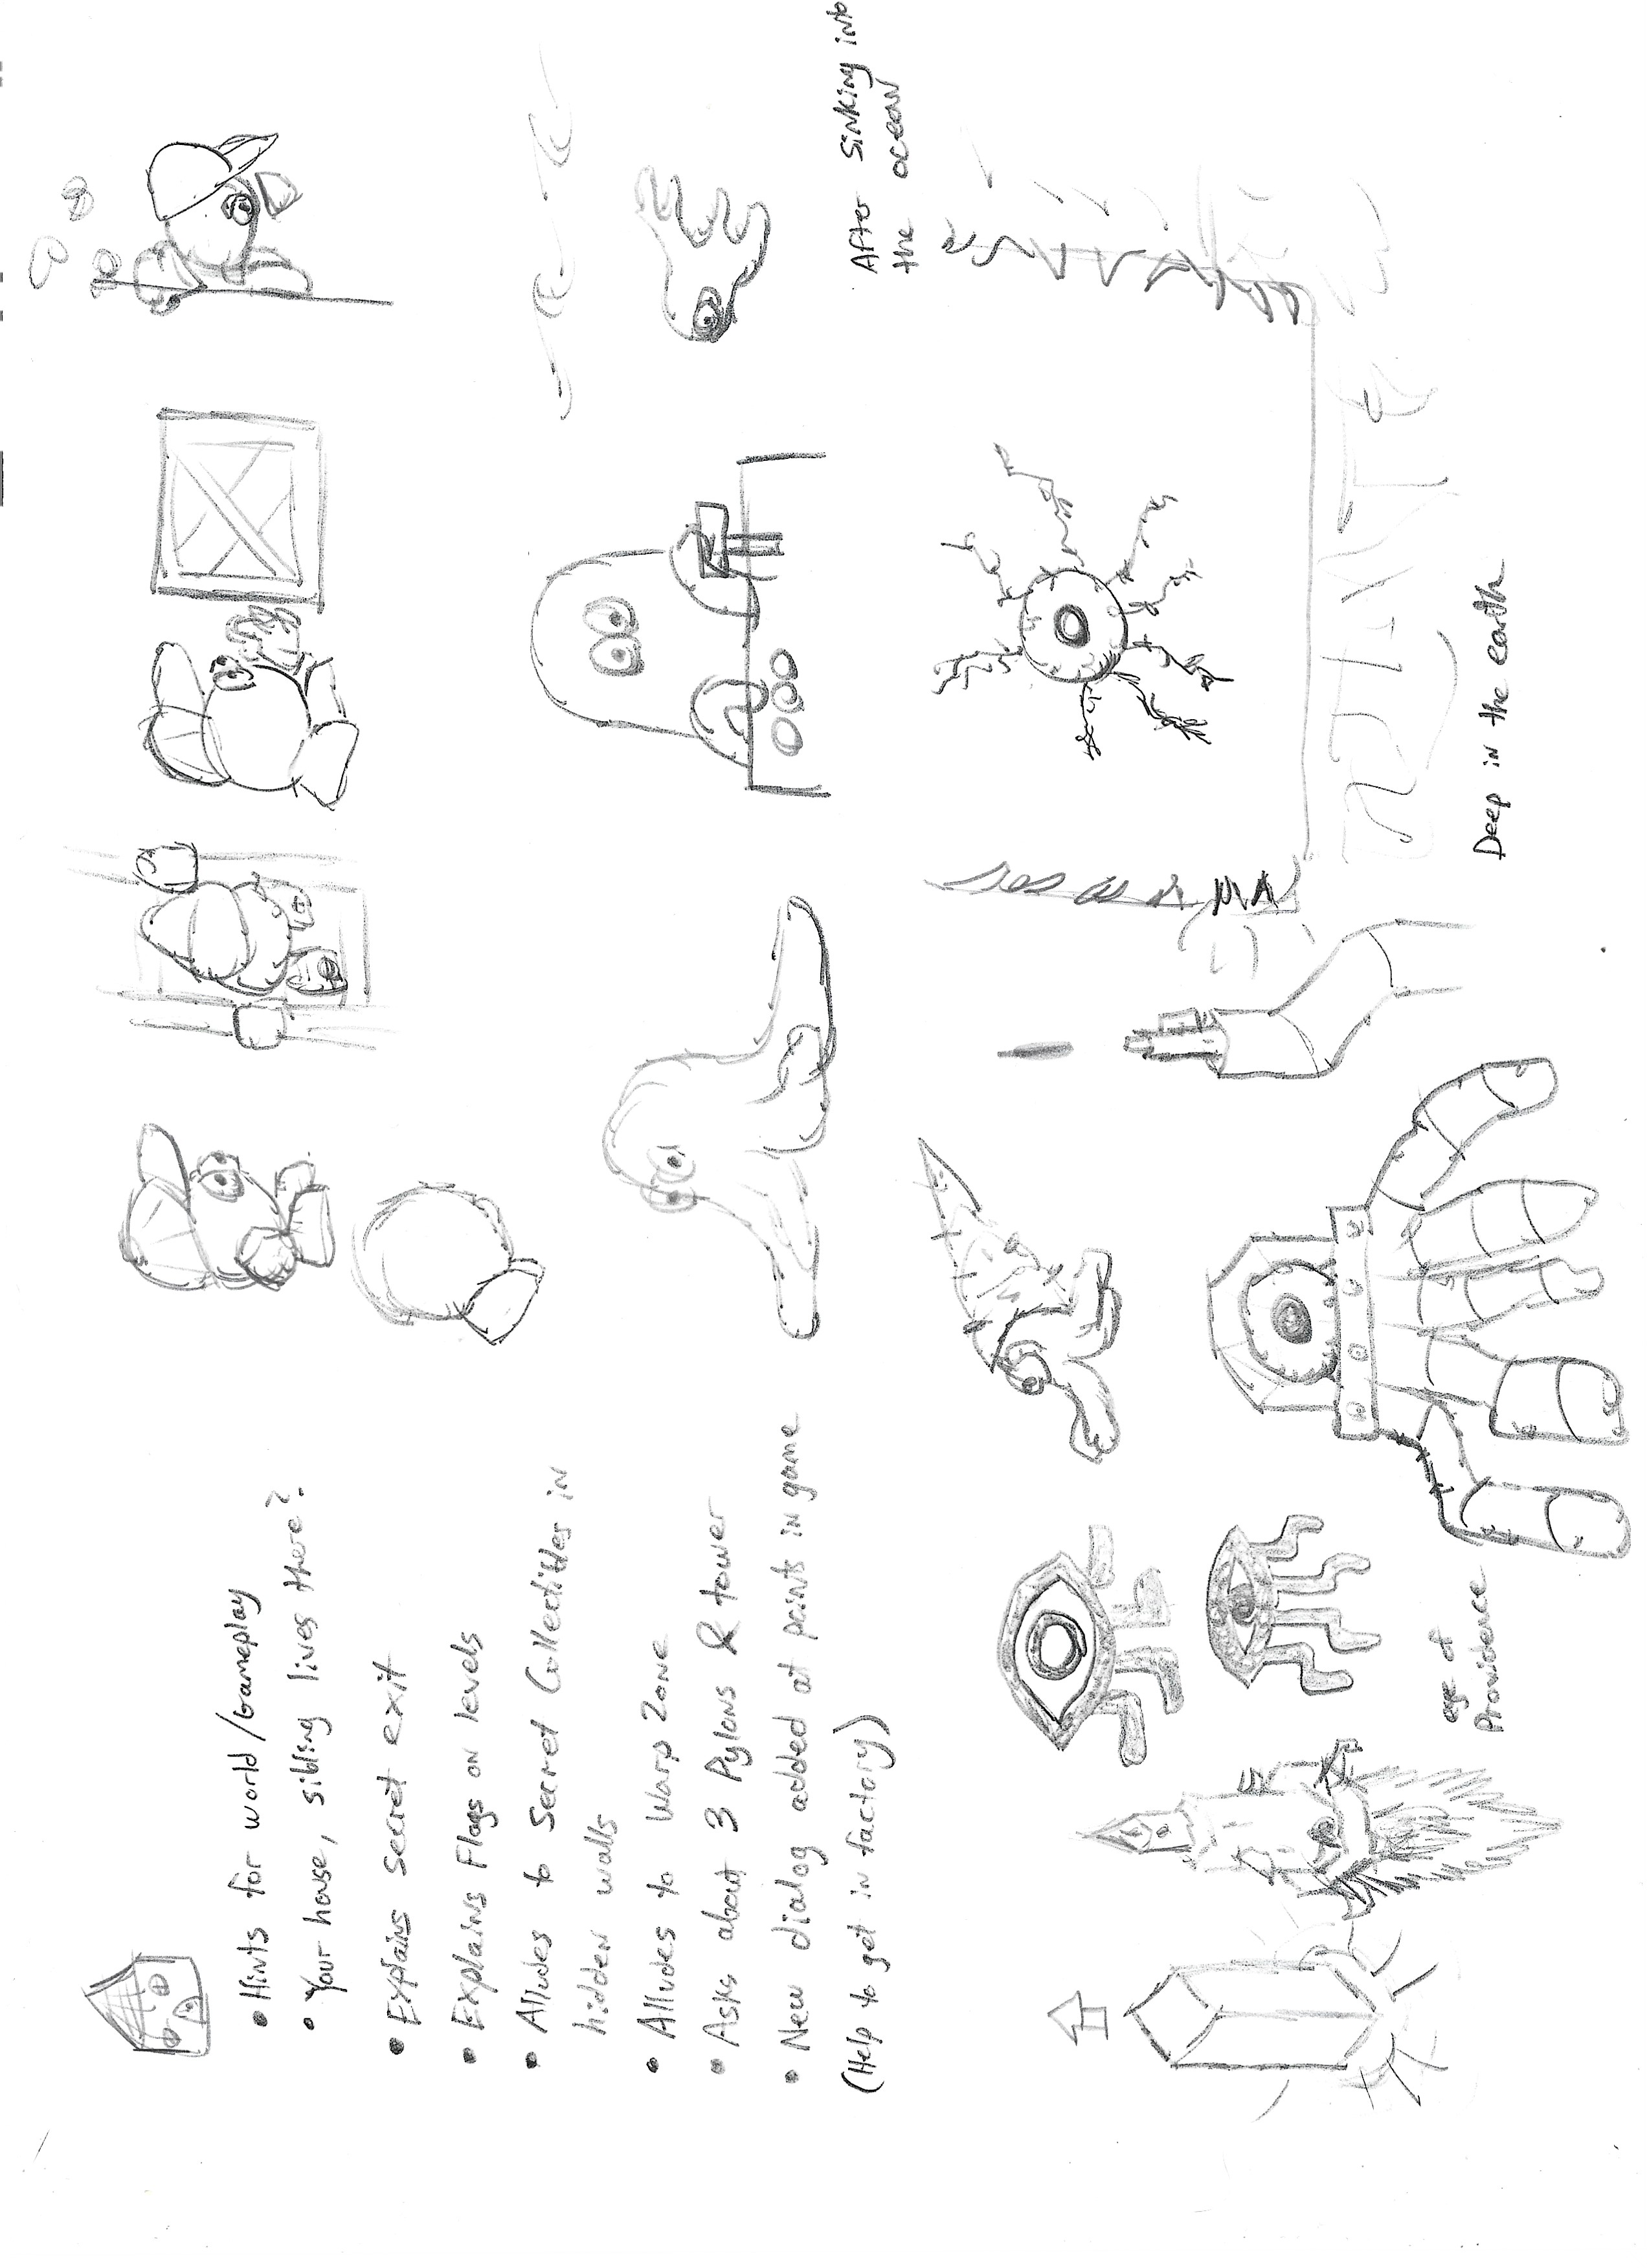 • Hints for world/Gameplay
• Your house, sibling lives there?
• Explains secret exit
• Explains Flags on levels
• Alludes to Secret Collectibles in
hidden walls
• Alludes to Warp Zone
• Asks about 3 Pylons & tower
• New dialog added at points in game
(Help to get in factory)
After Sinking into
the ocean
eye of
Providence
Deep in the earth